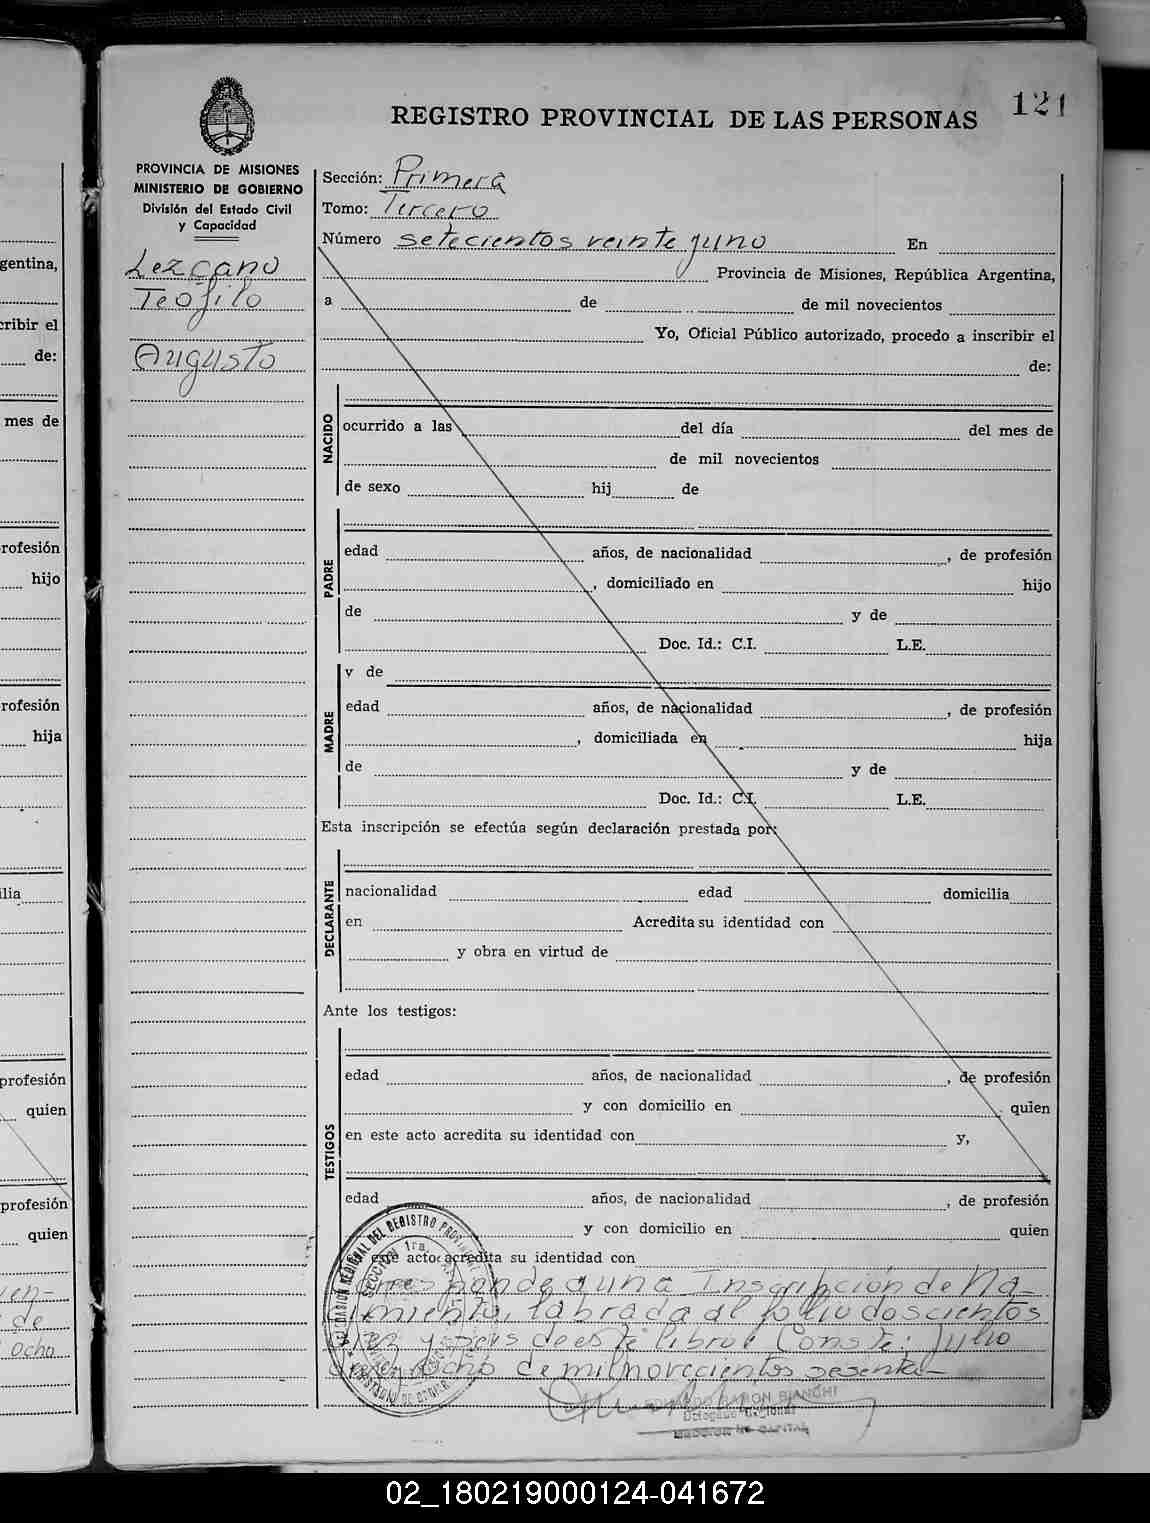 gentina,
cribir el
de:
mes de
rofesión
hijo
rofesión
hija
ilia
profesión
quien
profesión
quien
de
ocho
121
REGISTRO PROVINCIAL DE LAS PERSONAS
PROVINCIA DE MISIONES
MINISTERIO DE GOBIERNO
División del Estado Civil
y Capacidad
Lezcano
Teófilo
Augusto
Sección: Primera
Tomo: Tercero
Número setecientos veinte yuno En
Provincia de Misiones, República Argentina,
a de de mil novecientos
Yo, Oficial Público autorizado, procedo a inscribir el
de:
NACIDO
ocurrido a las del día del mes de
de mil novecientos
de sexo hij de
PADRE
edad años, de nacionalidad , de profesión
, domiciliado en hijo
de y de
Doc. Id.: C.I. L.E.
MADRE
y de
edad años, de nacionalidad , de profesión
, domiciliada en hija
de y de
Doc. Id.: C.I. L.E.
Esta inscripción se efectúa según declaración prestada por:
DECLARANTE
nacionalidad edad domicilia
en Acredita su identidad con
y obra en virtud de
Ante los testigos:
TESTIGOS
edad años, de nacionalidad , de profesión
y con domicilio en quien
en este acto acredita su identidad con y,
edad años, de nacionalidad , de profesión
y con domicilio en quien
este acto acredita su identidad con
ponde a una Inscripción de Na-
cimiento, labrada al folio doscientos
y seis de este libro Conste: Julio
ocho de mil novecientos sesenta-
DELEGACION REGIONAL DEL REGISTRO PROVINCIAL
SECCION 1ra.
RAMON BIANCHI
Delegado Regional
SECCION CAPITAL
02_180219000124-041672